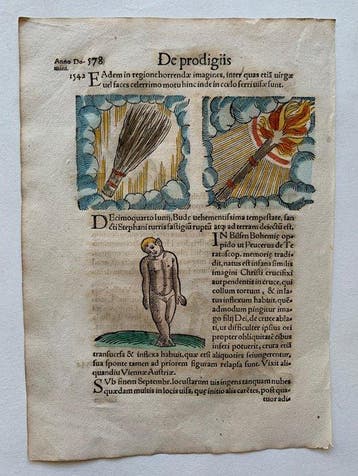 Anno Do- 578 De prodigiis
mini.
1542 EAdem in regione horrendæ imagines, inter quas etiã uirgæ
uel faces celerrimo motu hinc inde in cœlo ferri uisæ sunt.
DEcimoquarto Iunij, Budæ uehementissima tempestate, san
cti Stephani turris fastigiũ ruptũ atq; ad terram deiectũ est.
IN Bilsen Bohemiæ op=
pido ut Peucerus de Te
rat scop. memoriæ tradi=
dit, natus est infans similis
imagini Christi crucifixi
aut pendentis in cruce, qui
collum tortum, & in la=
tus inflexum habuit, que=
admodum pingitur imago
filij Dei, de cruce ablati,
ut difficulter ipsius ori
propter obliquitatẽ cibus
inseri potuerit, crura etiã
transuersa & inflexa habuit, quæ etsi aliquoties seiungerentur,
sua sponte tamen ad priorem figuram relapsa sunt. Vixit ali=
quandiu Viennæ Austriæ.
SVb finem Septembr. locustarum uis ingens tanquam nubes
quædam multis in locis uisa, quæ initio alis carẽtes, post qua=
tuor adi=